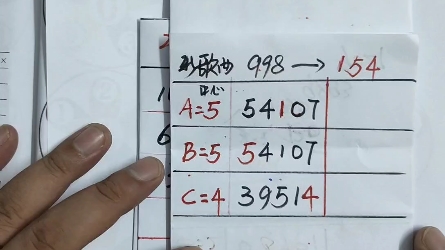 歌曲 998 → 154
中心
A=5 54107
B=5 54107
C=4 39514